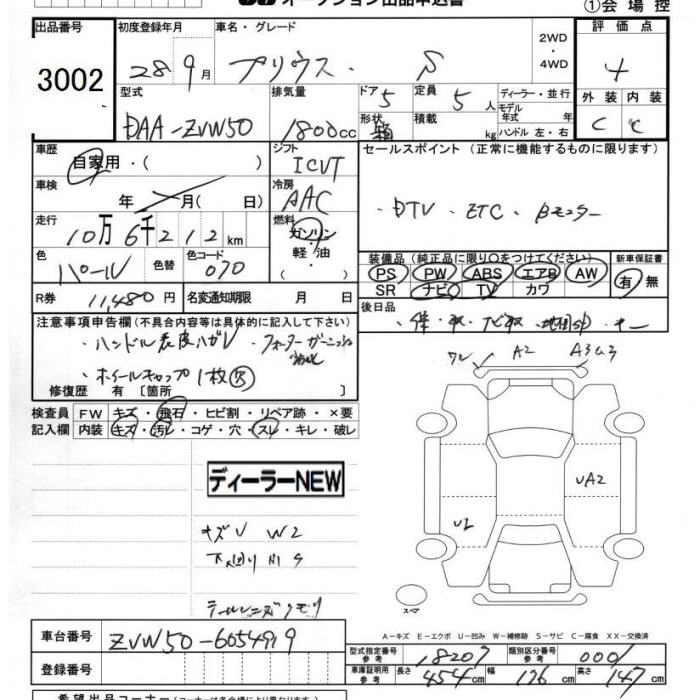 オークション出品申込書 ①会場控
出品番号 初度登録年月 車名・グレード 2WD・4WD 評価点
3002 28 9月 プリウス・ S 4
型式 排気量 ドア 5 定員 5人 ディーラー・並行 外装 内装
DAA-ZVW50 1800cc 形状 箱 積載 kg モデル年式 年式 ハンドル 左・右 C C
車歴 自家用・( ) シフト ICVT セールスポイント(正常に機能するものに限ります)
車検 年 月( 日) 冷房 AAC ・DTV ・ETC ・Bモニター
走行 10万6千212km 燃料 ガソリン・軽油・
色 パール 色替 色コード 070 装備品(純正品に限り○をつけてください) 新車保証書
PS PW ABS エアB AW 有・無
SR ナビ TV カワ
R券 11,480円 名変通知期限 月 日 後日品
注意事項申告欄(不具合内容等は具体的に記入して下さい)
・ハンドル表皮ハガレ
・ホイールキャップ1枚欠
修復歴 有〔箇所 〕
検査員 FW キズ・飛石・ヒビ割・リペア跡・×要
記入欄 内装 キズ・汚レ・コゲ・穴・スレ・キレ・破レ
A2
UA2
ディーラーNEW
キズU W2
スペア
A-キズ E-エクボ U-凹み W-補修跡 S-サビ C-腐食 XX-交換済
車台番号 ZVW50-6054919 型式指定番号 参考 18207 類別区分番号 参考 0001
登録番号 車庫証明用 参考 長さ 454cm 幅 176cm 高さ 147cm
希望出品コーナー